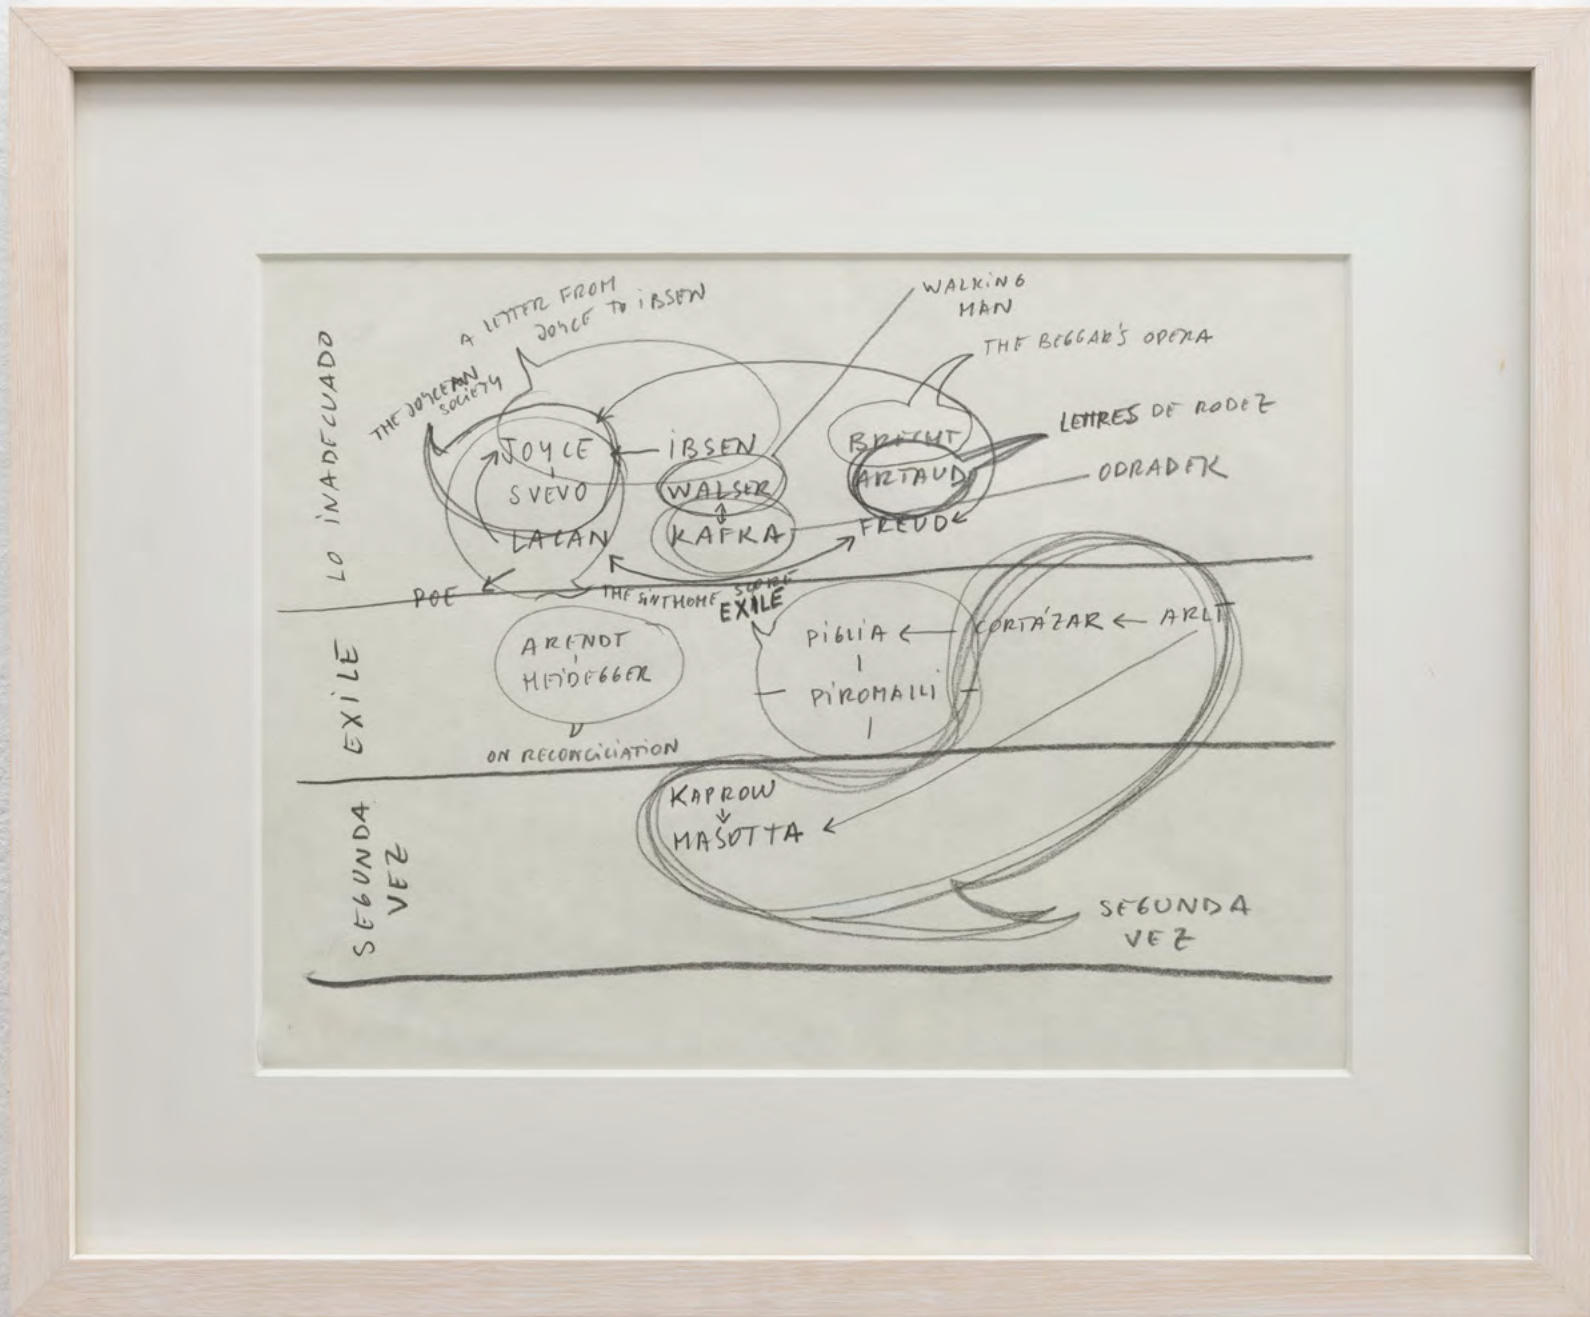 LO INADECUADO
A LETTER FROM
JOYCE TO IBSEN
THE JOYCEAN
SOCIETY
WALKING
MAN
THE BEGGAR'S OPERA
LETTRES DE RODEZ
ODRADEK
JOYCE
SVEVO
LACAN
POE
IBSEN
WALSER
KAFKA
BRECHT
ARTAUD
FREUD
THE SINTHOME SCORE
EXILE
EXILE
ARENDT
HEIDEGGER
ON RECONCILIATION
PIGLIA
CORTÁZAR
ARLT
PIROMALLI
SEGUNDA
VEZ
KAPROW
MASOTTA
SEGUNDA
VEZ